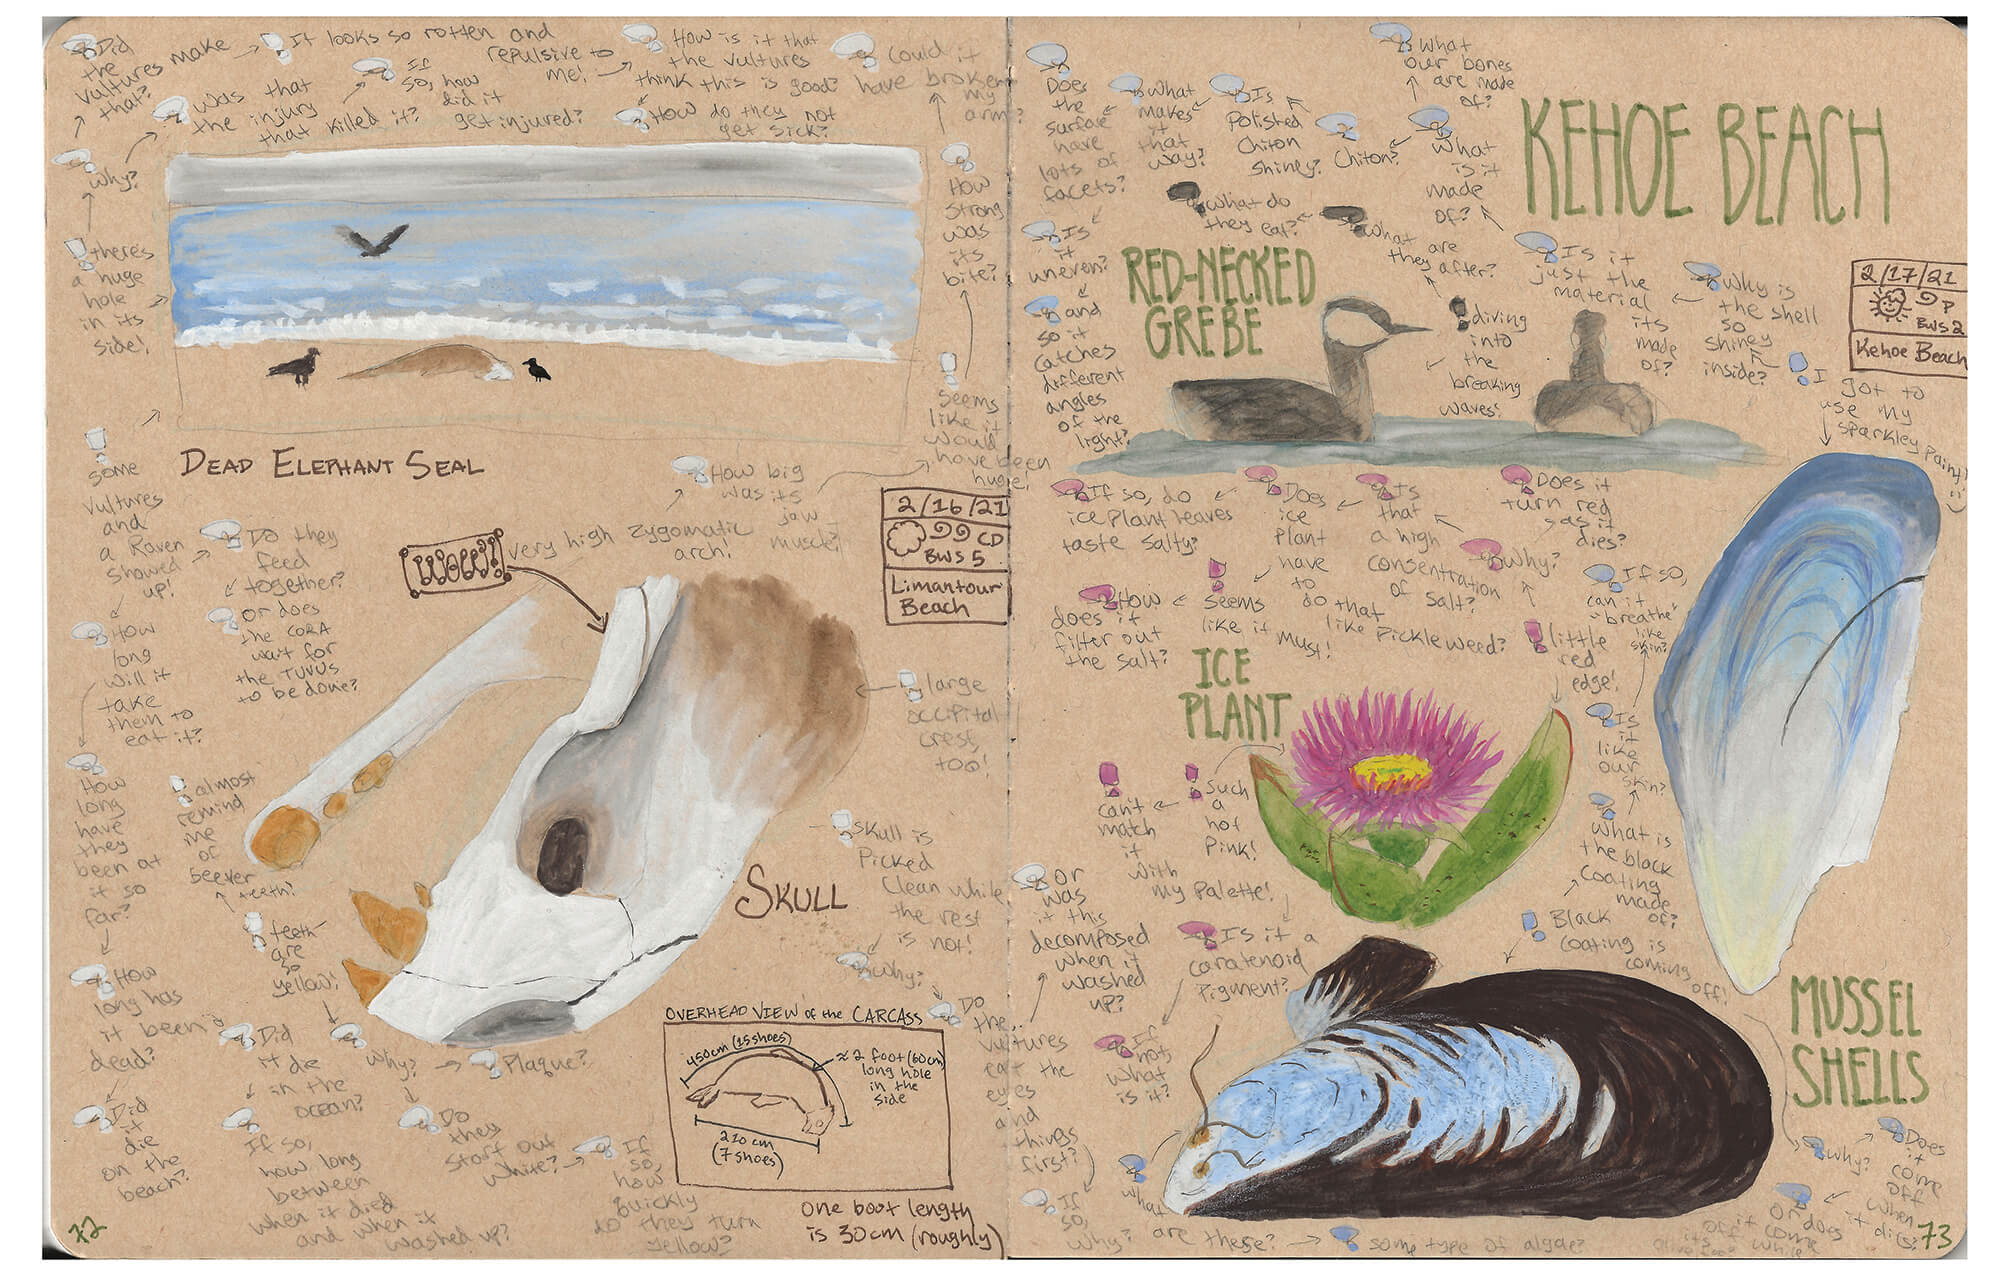 Did
the
vultures make
that?
It looks so rotten and
repulsive to
me!
How is it that
the vultures
think this is good?
could it
have broken
my
arm?
was that
the injury
that killed it?
If
so, how
did it
get injured?
How do they not
get sick?
why?
there's
a huge
hole
in its
side!
How
strong
was
its
bite?
seems
like it
would
have been
huge!
DEAD ELEPHANT SEAL
some
vultures
and
a Raven
showed
up!
Do they
feed
together?
or does
the CORA
wait for
the TUVUs
to be done?
How
long
will it
take
them to
eat it?
How
long
have
they
been at
it so
far?
How
long has
it been
dead?
Did
it
die
on the
beach?
How big
was its
jaw
muscle?
WOW!!
very high zygomatic
arch!
2/16/21
CD
BWS 5
Limantour
Beach
large
occipital
crest,
too!
almost
remind
me
of
beever
teeth!
teeth
are
so
yellow!
Did
it die
in the
ocean?
If so,
how long
between
when it died
and when it
washed up?
why?
Plaque?
Do
they
start out
white?
If
so,
how
quickly
do they turn
yellow?
SKULL
skull is
Picked
clean while
the rest
is not!
why?
Do
the
vultures
eat the
eyes
and
things
first?
OVERHEAD VIEW of the CARCASS
450cm (15 shoes)
≈ 2 foot (60cm)
long hole
in the
side
210 cm
(7 shoes)
one boot length
is 30cm (roughly)
72
KEHOE BEACH
what
our bones
are made
of?
Does
the
surface
have
lots of
facets?
what
makes
it
that
way?
Is
Polished
Chiton
shiney?
Chiton?
what
is it
made
of?
Is
it
uneven?
and
so it
catches
different
angles
of the
light?
what do
they eat?
what are
they after?
RED-NECKED
GREBE
diving
into
the
breaking
waves!
Is it
just the
material
its
made
of?
why is
the shell
so
shiney
inside?
2/17/21
P
BWS 2
Kehoe Beach
I got to
use my
sparkley paint!
If so, do
ice plant leaves
taste salty?
Does
ice
plant
have
to
do that
like Pickleweed?
Is
that
a high
consentration
of salt?
Does it
turn red
as it
dies?
why?
How
does it
filter out
the salt?
seems
like it
must!
little
red
edge!
If so,
can it
"breathe"
like
skin?
Is
it
like
our
skin?
what is
the black
coating
made
of?
Black
coating is
coming
off!
ICE
PLANT
such
a
hot
Pink!
can't
match
it
with
my palette!
Is it a
caratenoid
Pigment?
If
not,
what
is it?
or
was
it this
decomposed
when it
washed
up?
If
so,
why?
MUSSEL
SHELLS
why?
Does
it
come
off
when
it dies?
or does
it come
off while
what
are these?
some type of algae?
73